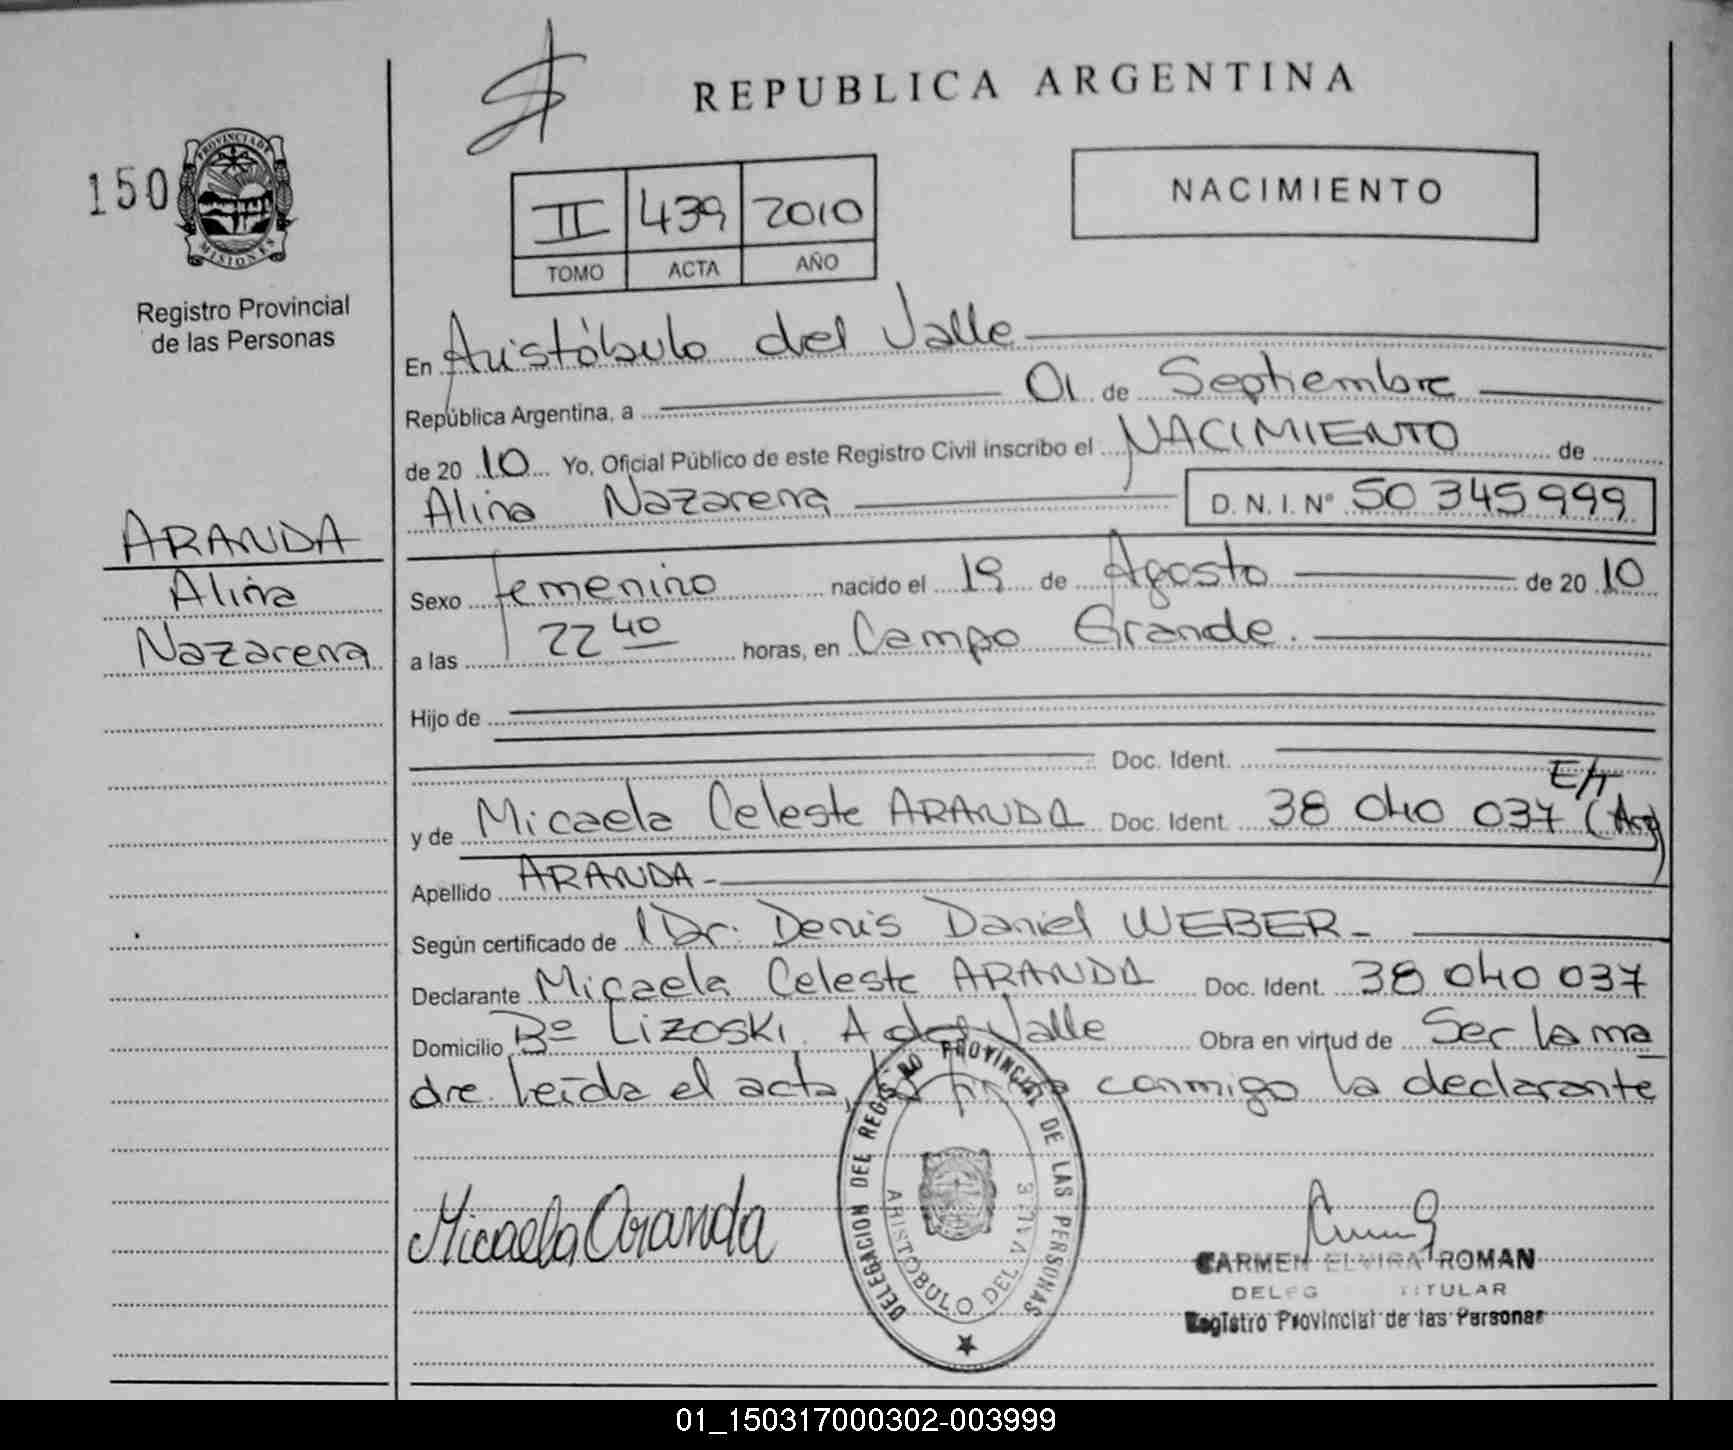 REPUBLICA ARGENTINA
150
PROVINCIA DE
MISIONES
Registro Provincial
de las Personas
NACIMIENTO
II 439 2010
TOMO ACTA AÑO
En Aristóbulo del Valle
República Argentina, a 01 de Septiembre
de 20 10 Yo, Oficial Público de este Registro Civil inscribo el NACIMIENTO de
Alina Nazarena D. N. I. Nº 50 345 999
ARANDA
Alina
Nazarena
Sexo femenino nacido el 19 de Agosto de 20 10
a las 22 40 horas, en Campo Grande.
Hijo de
Doc. Ident.
E/T
y de Micaela Celeste ARANDA Doc. Ident. 38 040 037 (Arg)
Apellido ARANDA -
Según certificado de Dr. Denis Daniel WEBER -
Declarante Micaela Celeste ARANDA Doc. Ident. 38 040 037
Domicilio Bº Lizoski. A del Valle Obra en virtud de Ser la ma
dre. leída el acta, la firma conmigo la declarante
Micaela Aranda
DELEGACION DEL REGISTRO PROVINCIAL DE LAS PERSONAS
ARISTOBULO DEL VALLE
CARMEN ELVIRA ROMAN
TITULAR
Registro Provincial de las Personas
01_150317000302-003999